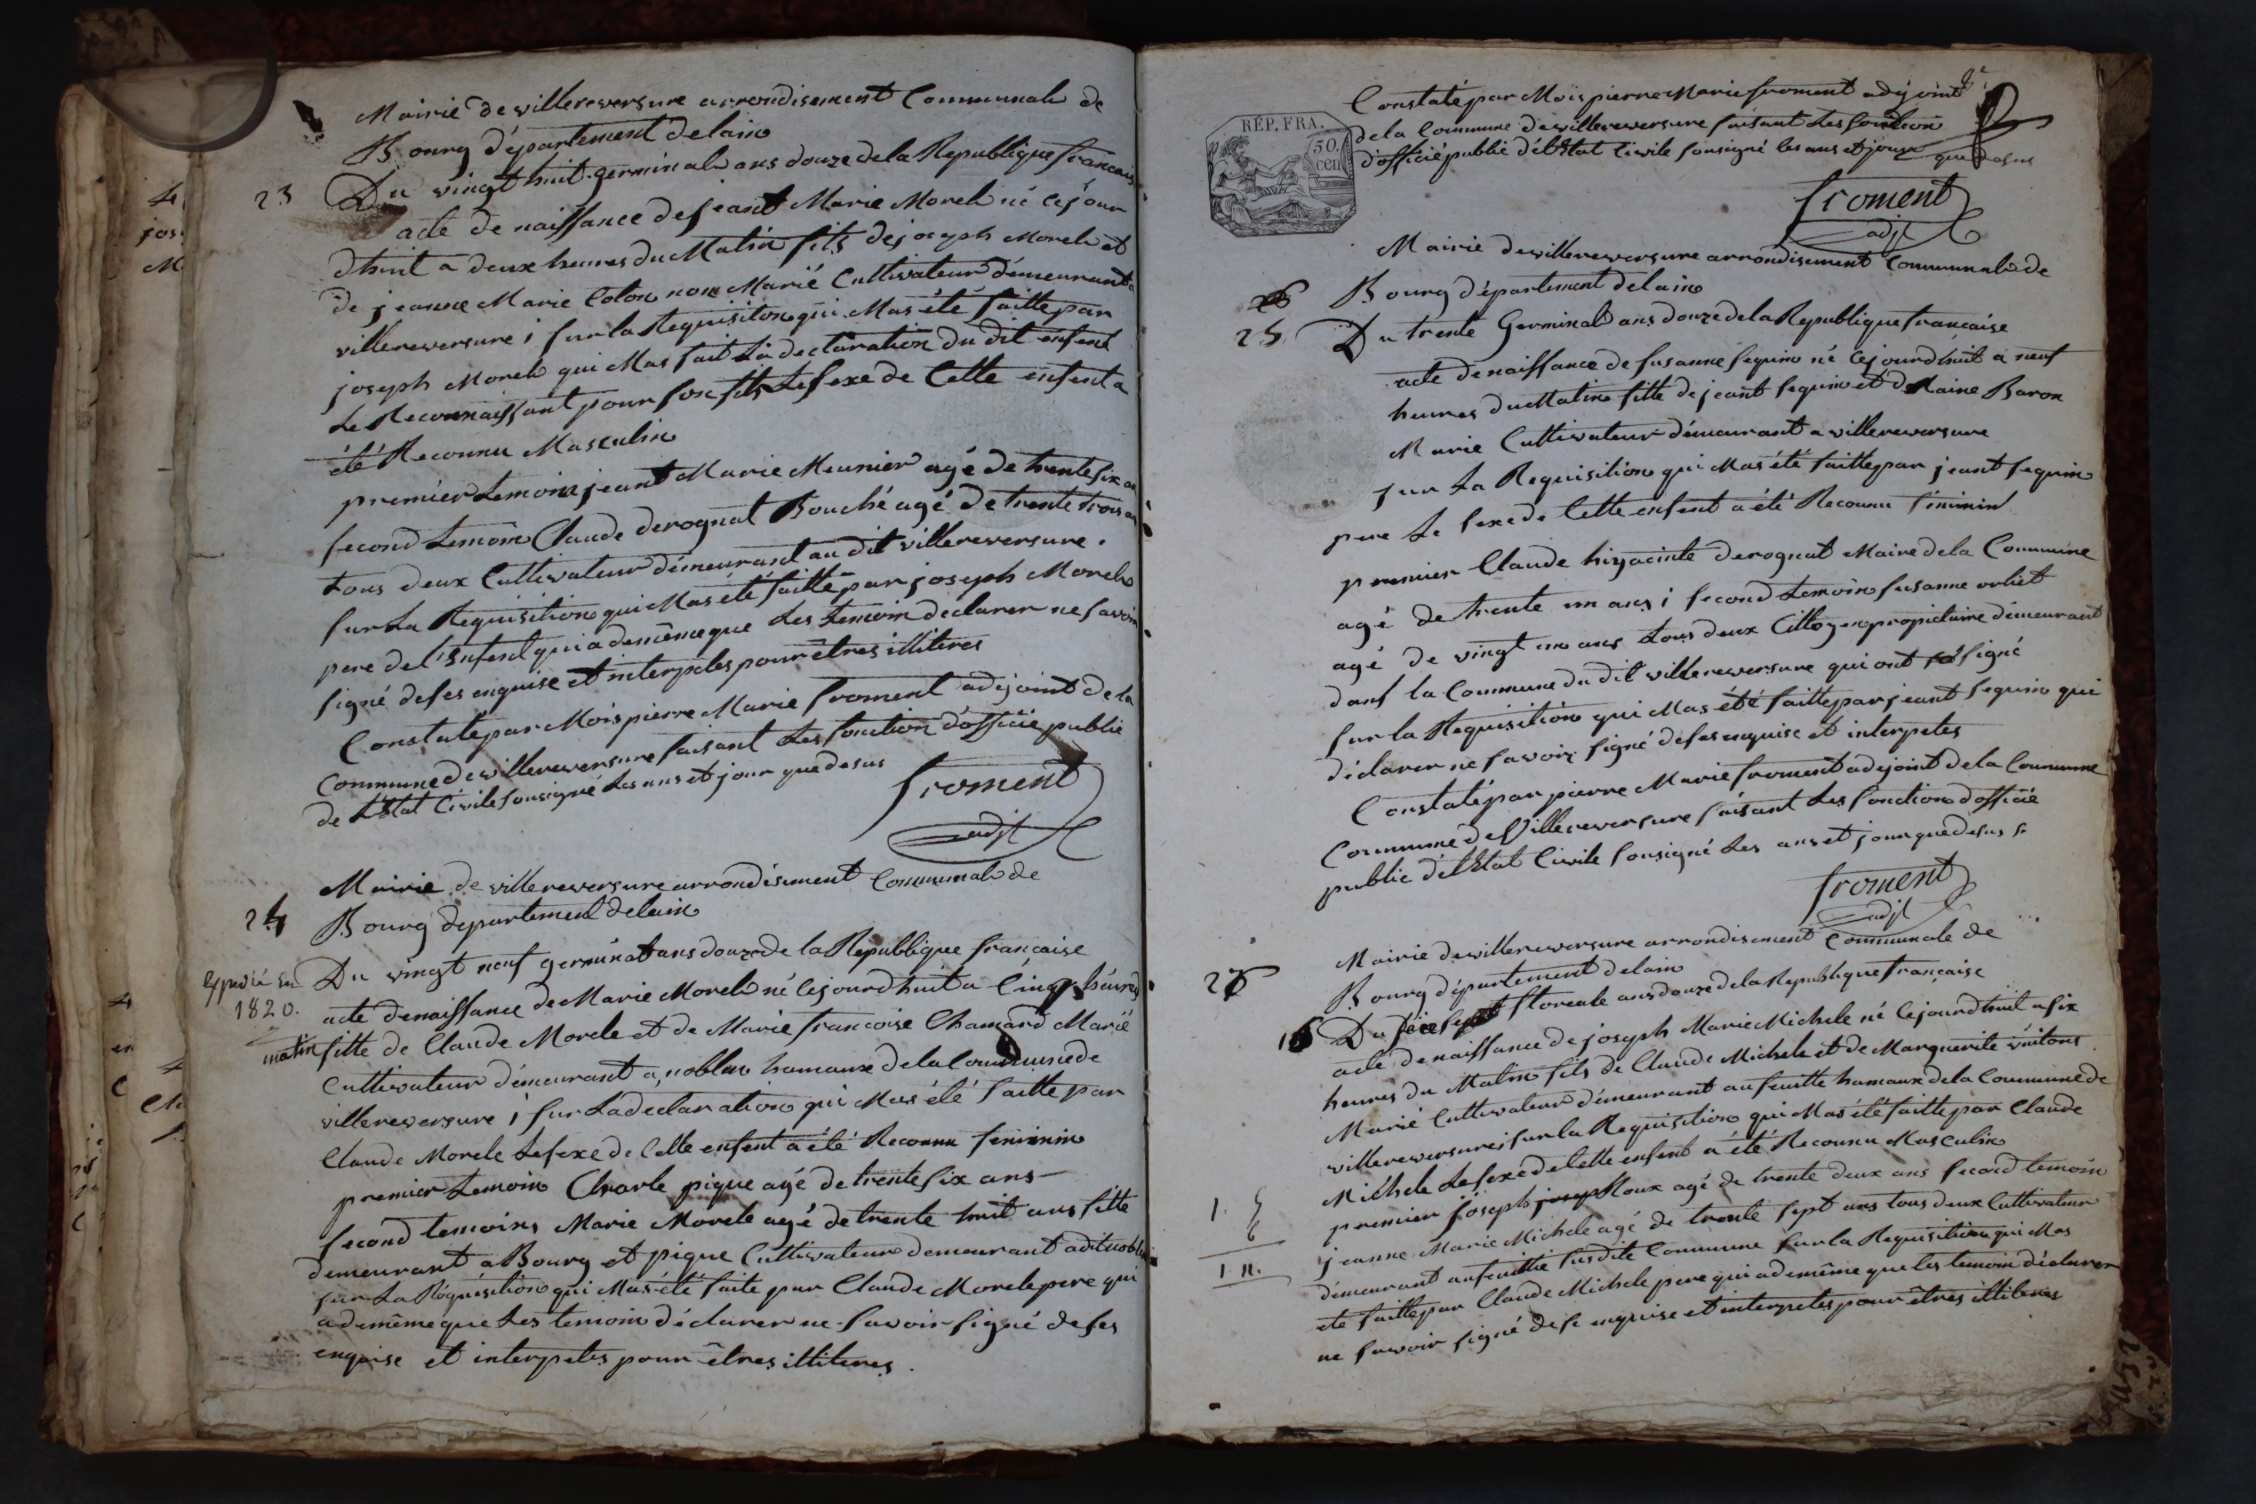 Mairie de villereversure arrondisement Communale de
Bourg département delain
23
Du vingt huit germinal ans douze dela Republique francais
acte de naissance de jeant Marie Morele né cejour
dhuit a deux heures du Matin fils de joseph Morele et
de jeanne Marie Colon non Marié Cultivateur démeurant a
villereversure ; sur la Requisition qui Mas été faitte par
joseph Morele qui Mas fait la declaration du dit enfent
le Reconnaissant pour son fils Le sexe de Cette enfent a
été Reconnu Masculin
premier temoin jeant Marie Meunier agé de trente six ans
second temoin Claude derognat Bouché agé de trente trois ans
tous deux Cultivateur démeurant au dit villereversure.
sur La Requisition qui Mas été faitte par joseph Morele
pere de l'Enfent qui a demême que Les temoin declarer ne savoir
signé de ses enquise et interpeles pour êtres illiteres
Constaté par Mois pierre Marie froment adejoint de la
Commune de villereversure faisant Les fonction d'officié public
de L'Etat Civile sousigné Les ans et jour que desus
froment
adjt
Mairie de villereversure arrondisement Communale de
24
Bourg departement delain
expedié en
1820.
Du vingt neuf germinal ans douze de la Republique francaise
acte denaissance de Marie Morele né cejourdhuit a Cinq heures
matin fille de Claude Morele et de Marie francoise Chamard Marié
Cultivateur démeurant a noblan hamaux de la Commune de
villereversure ; sur La declaration qui Mas été faitte par
Claude Morele Le sexe de Cette enfent a été Reconnu feminin
premier temoin Charle pique agé de trente six ans
second temoins Marie Morele agé de trente huit ans fille
demeurant a Bourg et pique Cultivateur demeurant adit noblan
sur La Réquisition qui Mas été faite par Claude Morele pere qui
a demême que Les temoin déclarer ne savoir signé de ses
enquise et interpetes pour êtres illiteres.
Constaté par Mois pierre Marie froment adejoint
de la Commune de villereversure faisant Les fonction
d'officié public de L'Etat Civile sousigné les ans et jour que desus
RÉP. FRA.
50.
cen
froment
adjt
Mairie de villereversure arrondisement Communale de
Bourg département delain
25
Du trente Germinal ans douze de la Republique francaise
acte de naissance de susanne sequin né cejourdhuit a neuf
heures du Matin fille de jeant sequin et de Raine Baron
Marie Cultivateur démeurant a villereversure
sur La Requisition qui Mas été faitte par jeant sequin
pere Le sexe de Cette enfent a été Reconnu féminin
premier Claude hiyacinte derognat Maire de la Commune
agé de trente un ans ; second temoin susanne orliet
agé de vingt un ans tous deux Cittoyen propietaire démeurant
dans la Commune du dit villereversure qui ont signé
sur la Requisition qui Mas été faitte par jeant sequin qui
déclarer ne savoir signé de ses enquise et interpetes
Constaté par pierre Marie froment adejoint de la Commune
Commune de Villereversure faisant Les fonction d'officié
public de L'Etat Civile sousigné Les ans et jour que desus
froment
adjt
Mairie de villereversure arrondisement Communale de
Bourg département delain
Du seize floreale ans douze de la Republique francaise
acte de naissance de joseph Marie Michele né cejourdhuit a six
heures du Matin fils de Claude Michele et de Marguerite
Marié Cultivateur démeurant au feuille hamaux de la Commune de
villereversure ; sur la Requisition qui Mas été faitte par Claude
Michele Le sexe de Cette enfent a été Reconnu Masculin
premier joseph joseph Roux agé de trente deux ans second temoin
jeanne Marie Michele agé de trente sept ans tous deux Cultivateur
démeurant au feuille susdite Commune sur la Requisition qui Mas
été faitte par Claude Michele pere qui a demême que les temoin déclarer
ne savoir signé de se enquise et interpetes pour êtres illiteres